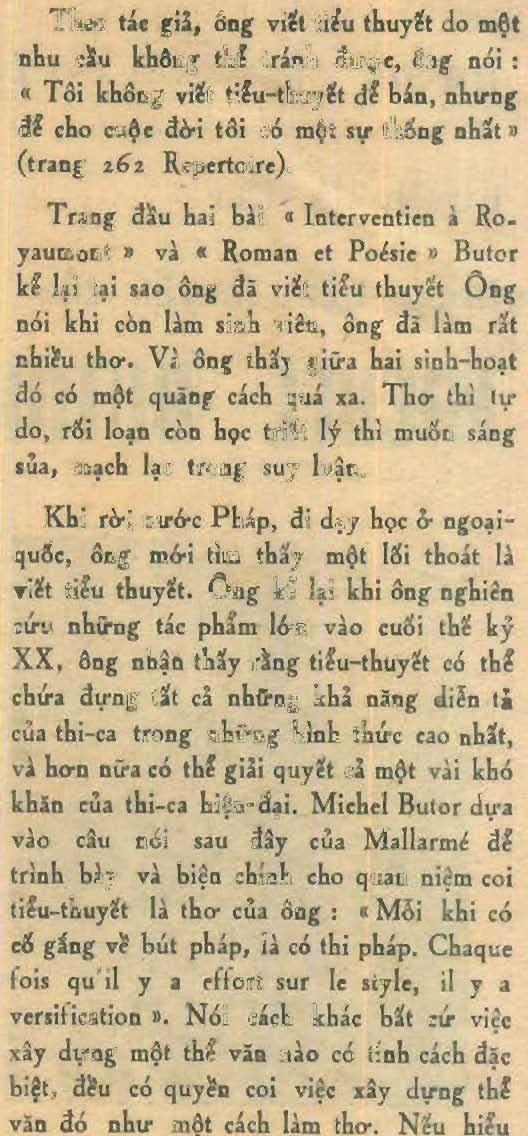 Theo tác giả, ông viết tiểu thuyết do một
nhu cầu không thể tránh được, ông nói :
« Tôi không viết tiểu-thuyết để bán, nhưng
để cho cuộc đời tôi có một sự thống nhất »
(trang 262 Repertoire).
Trang đầu hai bài « Interventien à Ro-
yaumont » và « Roman et Poésie » Butor
kể lại tại sao ông đã viết tiểu thuyết Ông
nói khi còn làm sinh viên, ông đã làm rất
nhiều thơ. Và ông thấy giữa hai sinh-hoạt
đó có một quãng cách quá xa. Thơ thì tự
do, rối loạn còn học triết lý thì muốn sáng
sủa, mạch lạc trong suy luận.
Khi rời nước Pháp, đi dạy học ở ngoại-
quốc, ông mới tìm thấy một lối thoát là
viết tiểu thuyết. Ông kể lại khi ông nghiên
cứu những tác phẩm lớn vào cuối thế kỷ
XX, ông nhận thấy rằng tiểu-thuyết có thể
chứa đựng tất cả những khả năng diễn tả
của thi-ca trong những hình thức cao nhất,
và hơn nữa có thể giải quyết cả một vài khó
khăn của thi-ca hiện-đại. Michel Butor dựa
vào câu nói sau đây của Mallarmé để
trình bày và biện chính cho quan niệm coi
tiểu-thuyết là thơ của ông : « Mỗi khi có
cố gắng về bút pháp, là có thi pháp. Chaque
fois qu'il y a effort sur le style, il y a
versification ». Nói cách khác bất cứ việc
xây dựng một thể văn nào có tính cách đặc
biệt, đều có quyền coi việc xây dựng thể
văn đó như một cách làm thơ. Nếu hiểu